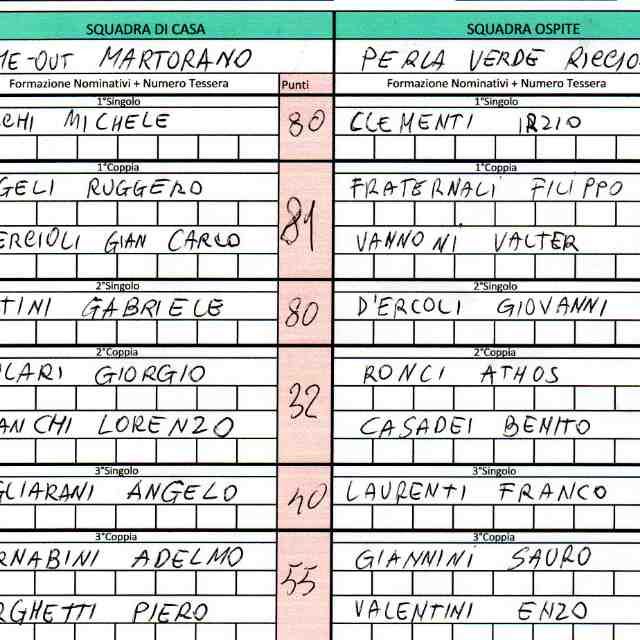 SQUADRA DI CASA SQUADRA OSPITE
ME-OUT MARTORANO PERLA VERDE RICCIO
Formazione Nominativi + Numero Tessera Punti Formazione Nominativi + Numero Tessera
1°Singolo 1°Singolo
CHI MICHELE 80 CLEMENTI IRZIO
1°Coppia 1°Coppia
GELI RUGGERO FRATERNALI FILIPPO
81
ERCIOLI GIAN CARLO VANNONI VALTER
2°Singolo 2°Singolo
TINI GABRIELE 80 D'ERCOLI GIOVANNI
2°Coppia 2°Coppia
LARI GIORGIO RONCI ATHOS
32
ANCHI LORENZO CASADEI BENITO
3°Singolo 3°Singolo
GLIARANI ANGELO 40 LAURENTI FRANCO
3°Coppia 3°Coppia
RNABINI ADELMO GIANNINI SAURO
55
RGHETTI PIERO VALENTINI ENZO